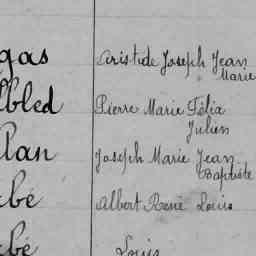 gas Aristide Joseph Jean
Marie
lbled Pierre Marie Félix
Julien
lan Joseph Marie Jean
Baptiste
bé Albert René Louis
bé Louis